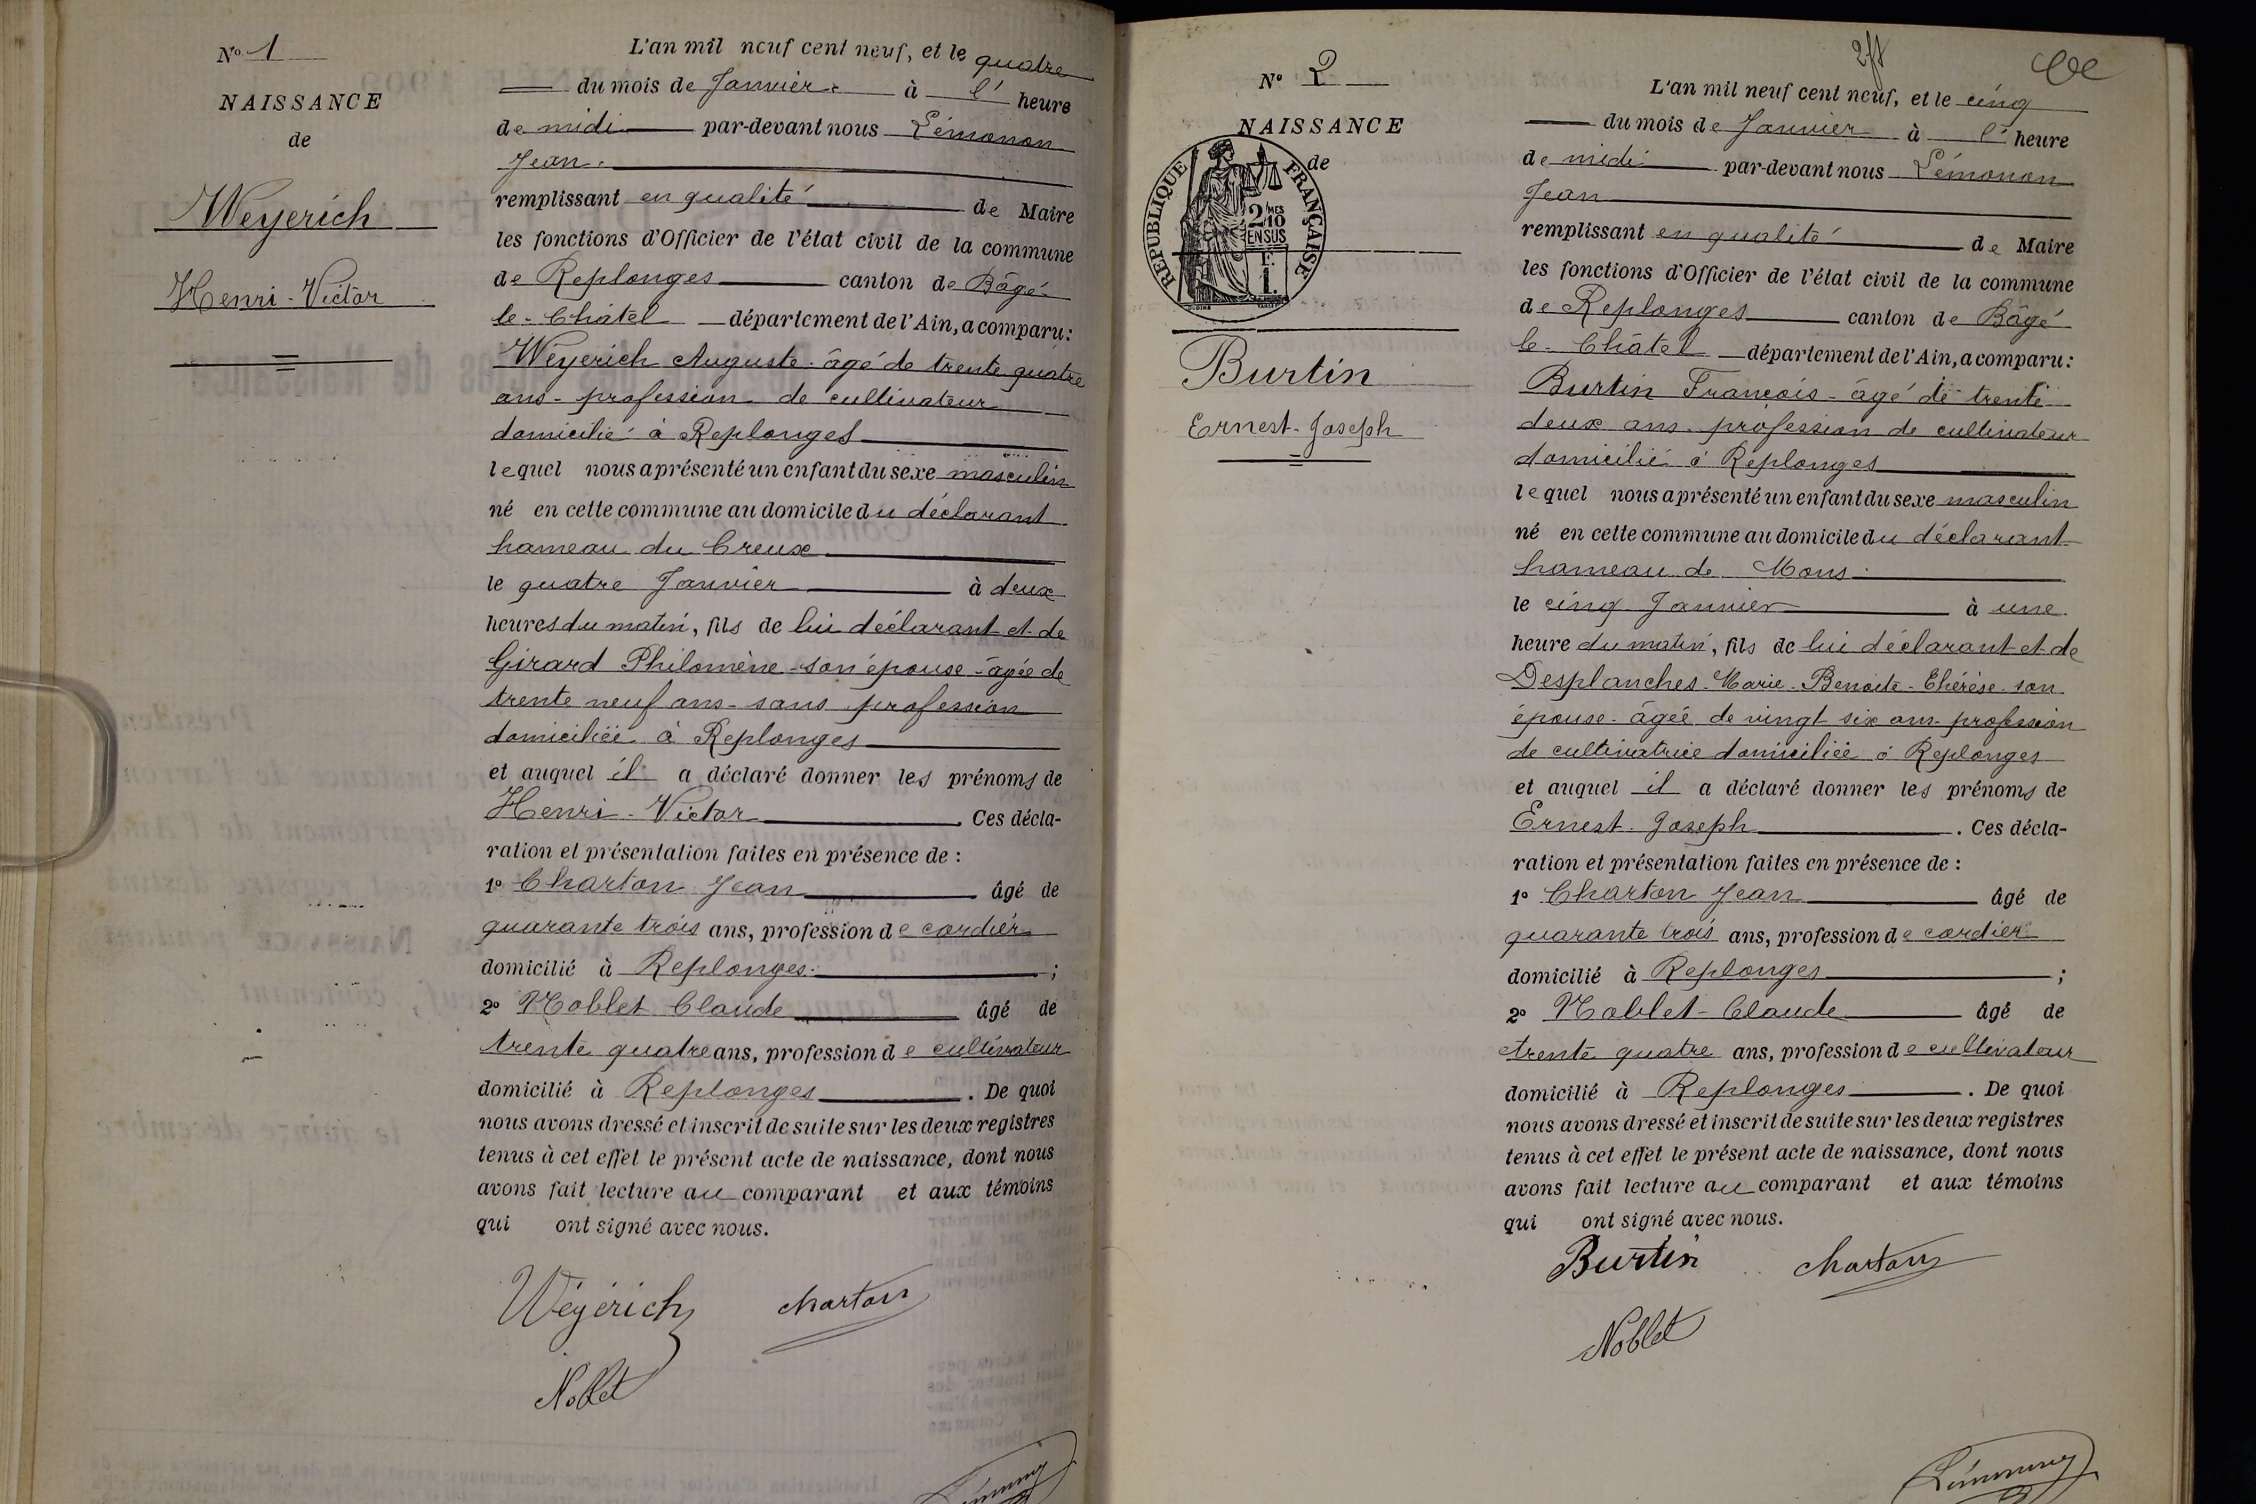 N° 1
NAISSANCE
de
Weyerich
Henri-Victor
L'an mil neuf cent neuf, et le quatre
du mois de Janvier à l' heure
de midi par-devant nous Lémonon
Jean
remplissant en qualité de Maire
les fonctions d'Officier de l'état civil de la commune
de Replonges canton de Bâgé-
le-Châtel département de l'Ain, a comparu:
Weyerich Auguste - âgé de trente quatre
ans - profession de cultivateur
domicilié à Replonges
lequel nous a présenté un enfant du sexe masculin
né en cette commune au domicile du déclarant
hameau du Creux
le quatre Janvier à deux
heures du matin, fils de lui déclarant et de
Girard Philomène - son épouse - âgée de
trente neuf ans - sans profession
domiciliée à Replonges
et auquel il a déclaré donner les prénoms de
Henri-Victor. Ces décla-
ration et présentation faites en présence de :
1° Charton Jean âgé de
quarante trois ans, profession de cordier
domicilié à Replonges ;
2° Noblet Claude âgé de
trente quatre ans, profession de cultivateur
domicilié à Replonges. De quoi
nous avons dressé et inscrit de suite sur les deux registres
tenus à cet effet le présent acte de naissance, dont nous
avons fait lecture au comparant et aux témoins
qui ont signé avec nous.
Wéyérich charton
Noblet
N° 2
NAISSANCE
de
RÉPUBLIQUE FRANÇAISE
2/10 MES
EN SUS
F.
1.
Burtin
Ernest-Joseph
L'an mil neuf cent neuf, et le cinq
du mois de Janvier à l' heure
de midi par-devant nous Lémonon
Jean
remplissant en qualité de Maire
les fonctions d'Officier de l'état civil de la commune
de Replonges canton de Bâgé
le-Châtel département de l'Ain, a comparu:
Burtin François - âgé de trente
deux ans - profession de cultivateur
domicilié à Replonges
lequel nous a présenté un enfant du sexe masculin
né en cette commune au domicile du déclarant
hameau de Mons
le cinq Janvier à une
heure du matin, fils de lui déclarant et de
Desplanches - Marie - Benoite - Thérèse - son
épouse - âgée de vingt six ans - profession
de cultivatrice domiciliée à Replonges
et auquel il a déclaré donner les prénoms de
Ernest-Joseph. Ces décla-
ration et présentation faites en présence de :
1° Charton Jean âgé de
quarante trois ans, profession de cordier
domicilié à Replonges ;
2° Noblet-Claude âgé de
trente quatre ans, profession de cultivateur
domicilié à Replonges. De quoi
nous avons dressé et inscrit de suite sur les deux registres
tenus à cet effet le présent acte de naissance, dont nous
avons fait lecture au comparant et aux témoins
qui ont signé avec nous.
Burtin charton
Noblet